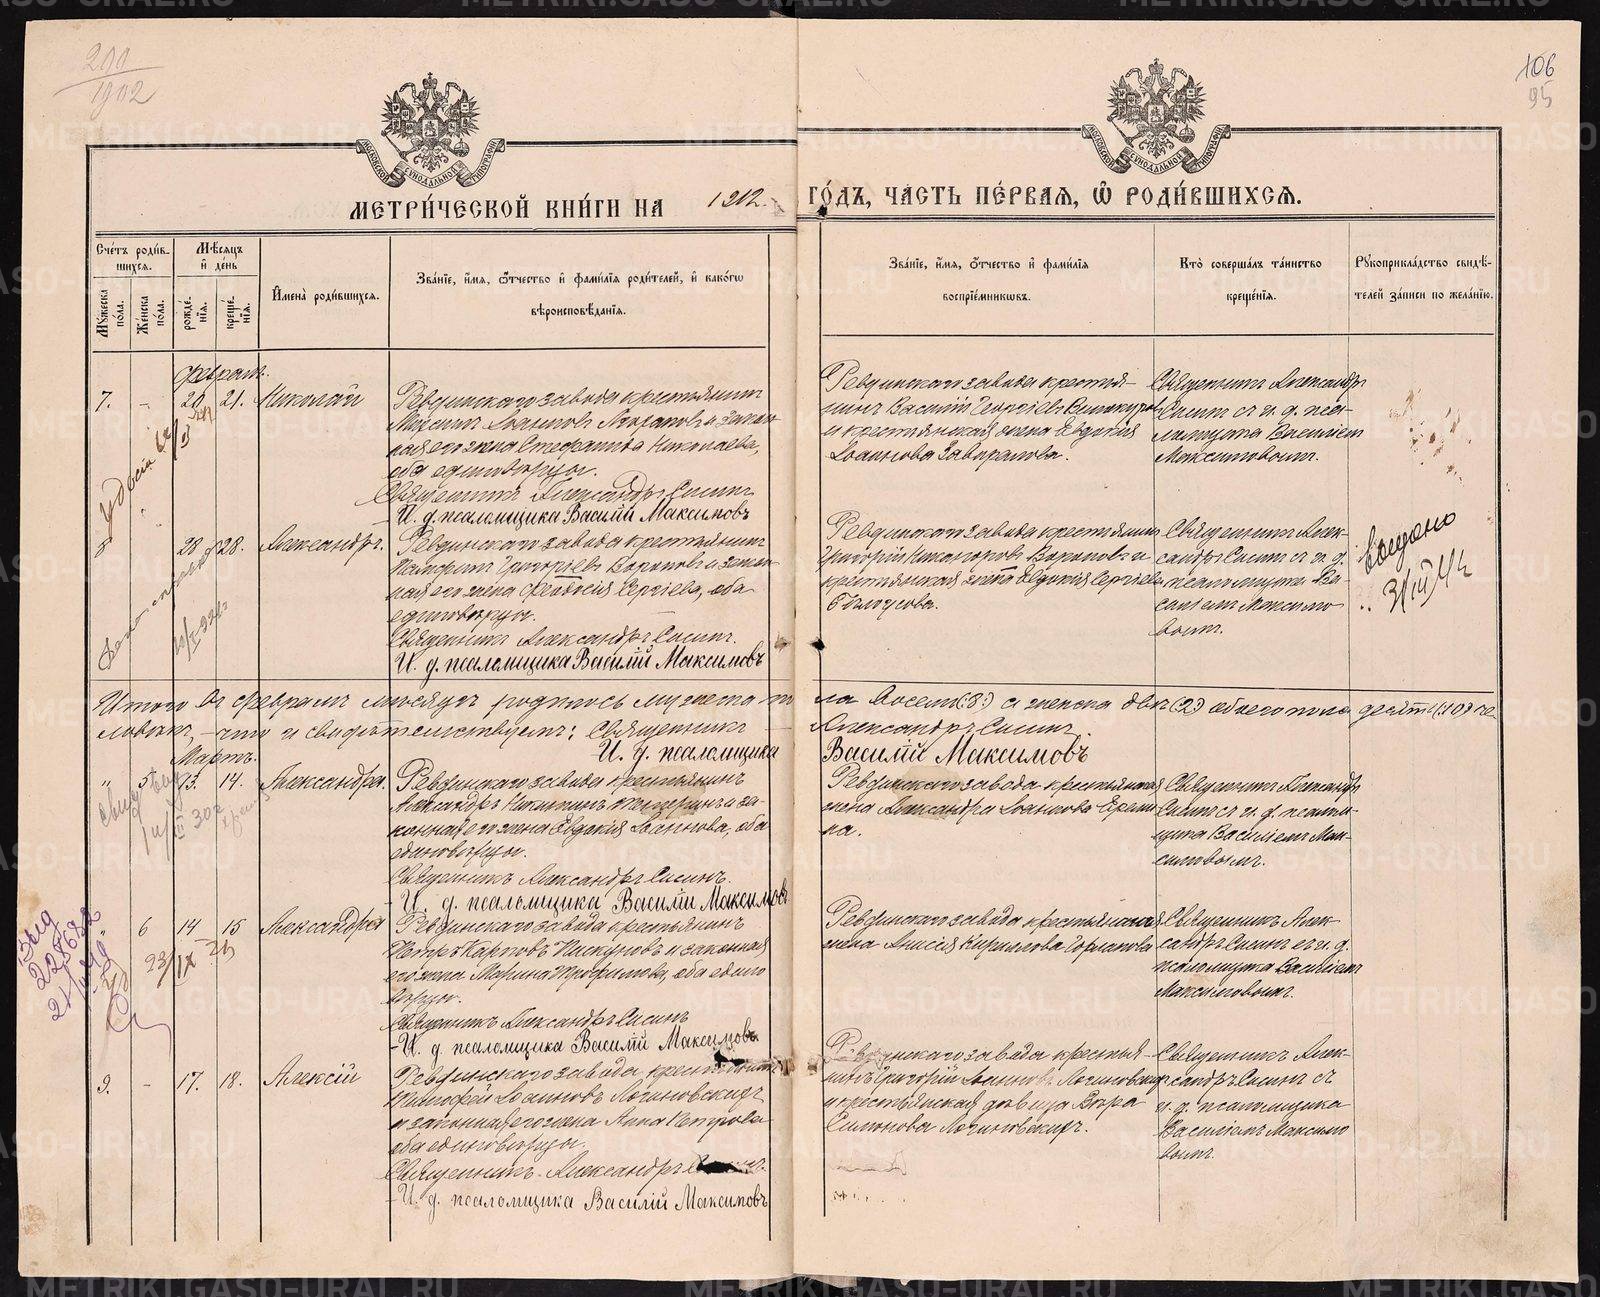 200
1902
106
95
МОСКОВСКОЙ СѴНОДАЛЬНОЙ ТИПОГРАФІИ
МОСКОВСКОЙ СѴНОДАЛЬНОЙ ТИПОГРАФІИ
МЕТРИ́ЧЕСКОЙ КНИ́ГИ НА 1902 ГО́ДЪ, ЧА́СТЬ ПЕ́РВАЯ, Ѡ РОДИ́ВШИХСЯ.
Сче́тъ роди́в-
шихся.
Мꙋ́жеска по́ла.
Же́нска по́ла.
Мѣ́сяцъ
и҆ де́нь
рожде́-
нїя.
креще́-
нїя.
И҆мена̀ роди́вшихся.
Зва́нїе, и҆́мя, ѻ҆́тчество и҆ фами́лїя роди́телей, и҆ како́гѡ
вѣроисповѣ́данїя.
Зва́нїе, и҆́мя, ѻ҆́тчество и҆ фами́лїя
воспрїе́мникѡвъ.
Кто̀ соверша́лъ та́инство
креще́нїя.
Рꙋкоприкла́дство свидѣ́-
телей за́писи по жела́нїю.
Февраль.
7. - 20 21. Николай
Ревдинскаго завода крестьянинъ
Максимъ Іоанновъ и закон-
ная его жена Стефанида Николаева,
оба единоверцы.
Священникъ Александръ Сисинъ
И. д. псаломщика Василій Максимовъ
Ревдинскаго завода крестья-
нинъ Василій Георгіевъ Винокуровъ
и крестьянская жена Евдокія
Іоаннова Завиралова.
Священникъ Александръ
Сисинъ съ и. д. пса-
ломщика Василіемъ
Максимовымъ.
8 28 28. Александръ.
Ревдинскаго завода крестьянинъ
Григоріевъ Вороновъ и закон-
ная его жена Феодосія Сергіева, оба
единоверцы.
Священникъ Александръ Сисинъ.
И. д. псаломщика Василій Максимовъ
Ревдинскаго завода крестьянинъ
Григорій Никаноровъ Вороновъ и
крестьянская жена Евдокія Сергіева
Белоусова.
Священникъ Алек-
сандръ Сисинъ съ и. д.
псаломщика Ва-
силіемъ Максимо
вымъ.
Итого въ Феврале месяце родилось мужеска по
ла восемь (8) и женска две (2) обоего пола десять (10) че-
ловекъ, - что и свидетельствуемъ: Священникъ
Александръ Сисинъ.
И. д. псаломщика
Василій Максимовъ
Мартъ.
" 5 13. 14. Александра.
Ревдинскаго завода крестьянинъ
Александръ Никитинъ и за-
конная его жена Евдокія Іоаннова, оба
единоверцы.
Священникъ Александръ Сисинъ.
- И. д. псаломщика Василій Максимовъ
Ревдинскаго завода крестьянская
жена Александра Іоаннова
Священникъ Александръ
Сисинъ съ и. д. псалом-
щика Василіемъ Мак-
симовымъ.
" 6 14 15 Александра
Ревдинскаго завода крестьянинъ
Петръ Карповъ Пискуновъ и законная
его жена Марина Трофимова, оба едино
верцы.
Священникъ Александръ Сисинъ
- И. д. псаломщика Василій Максимовъ
Ревдинскаго завода крестьянская
жена Анисія Кириллова
Священникъ Алек-
сандръ Сисинъ съ и. д.
псаломщика Василіемъ
Максимовымъ.
9. - 17. 18. Алексій
Ревдинскаго завода крестьянинъ
Тимофей Іоанновъ Логиновскихъ
и законная его жена Анна Петрова
оба единоверцы.
Священникъ Александръ
- И. д. псаломщика Василій Максимовъ
Ревдинскаго завода крестья-
нинъ Григорій Іоанновъ Логиновскихъ
и крестьянская девица Вера
Симонова Логиновскихъ.
Священникъ Алек-
сандръ Сисинъ съ
и. д. псаломщика
Василіемъ Максимо
вымъ.
METRIKI.GASO-URAL.RU